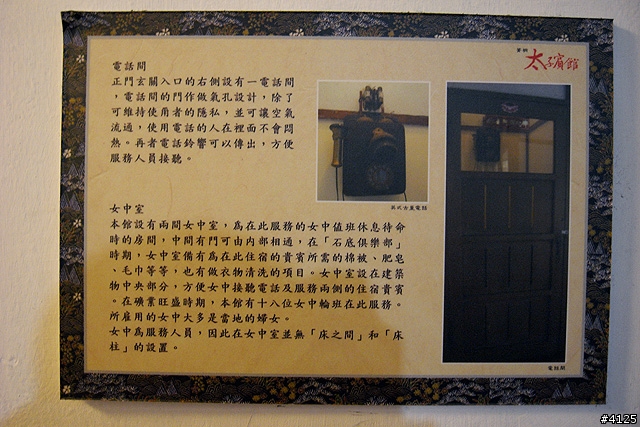 黃金 太子賓館
電話間
正門玄關入口的右側設有一電話間
，電話間的門作做氣孔設計，除了
可維持使用者的隱私，並可讓空氣
流通，使用電話的人在裡面不會悶
熱。再者電話鈴響可以傳出，方便
服務人員接聽。
英式古董電話
女中室
本館設有兩間女中室，為在此服務的女中值班休息待命
時的房間，中間有門可由內部相通，在「石底俱樂部」
時期，女中室備有為在此住宿的貴賓所需的棉被、肥皂
、毛巾等等，也有做衣物清洗的項目。女中室設在建築
物中央部分，方便女中接聽電話及服務兩側的住宿貴賓
。在礦業旺盛時期，本館有十八位女中輪班在此服務。
所雇用的女中大多是當地的婦女。
女中為服務人員，因此在女中室並無「床之間」和「床
柱」的設置。
電話間
#4125